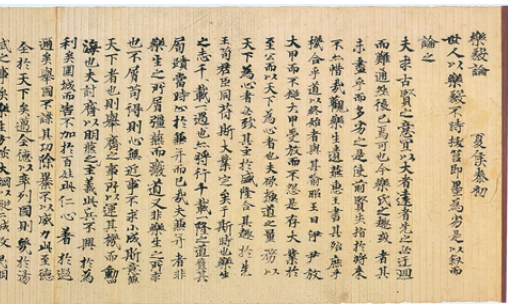 樂毅論　夏侯泰初
世人以樂毅不時拔莒即墨為劣是以敘而
論之
夫求古賢之意宜以大者遠者先之必迂迴
而難通然後已焉可也今樂氏之趣或者其
未盡乎而多劣之是使前賢失指於將來
不亦惜哉觀樂生遺燕惠王書其殆庶乎
機合乎道以終始者與其喻昭王曰伊尹放
大甲而不疑大甲受放而不怨是存大業於
至公而以天下為心者也夫欲極道之量務以
天下為心者必致其主於盛隆合其趣於先
王苟君臣同符斯大業定矣于斯時也樂生
之志千載一遇也亦將行千載一隆之道豈其
局蹟當時止於兼并而已哉夫兼并者非
樂生之所屑彊燕而廢道又非樂生之所求
也不屑苟得則心無近事不求小成斯意兼
天下者也則舉齊之事所以運其機而動
海也夫討齊以明燕之主義此兵不興於為
利矣圍城而害不加於百姓此仁心著於遐
邇矣舉國不謀其功除暴不以威力此至德
全於天下矣邁全德以率列國則幾於湯
武之事矣樂生方恢大綱以縱二城收民明